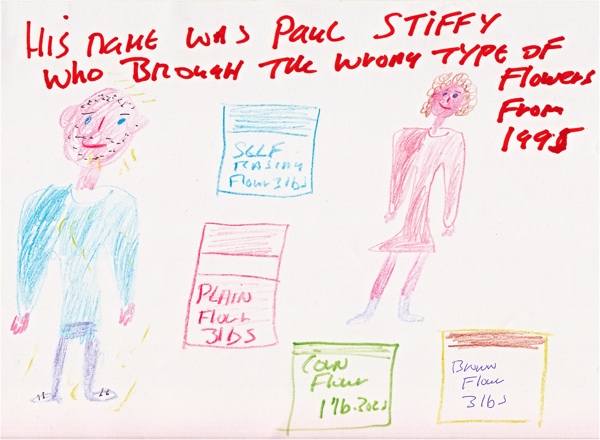 His name was Paul STiffy
who Brough The wrong Type of
Flowers
From
1995
SELF
RASING
Flour 3lbs
PLAIN
Flour
3lbs
Corn
Flour
1lb.3ozs
Brown
Flour
3lbs